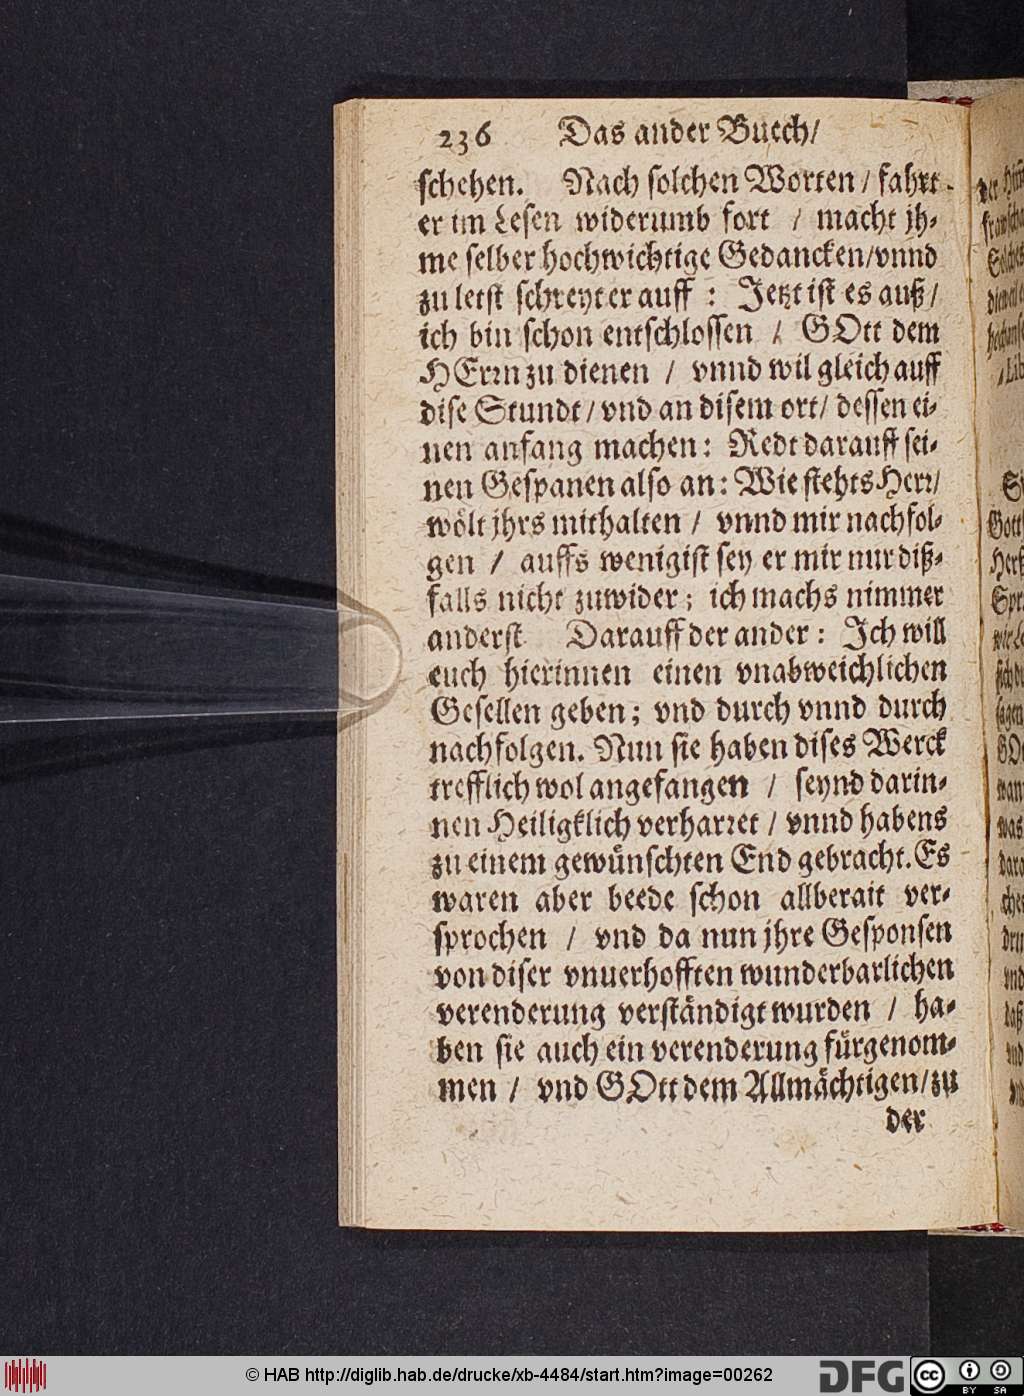 236 Das ander Buech/
schehen. Nach solchen Worten / fahrt
er im Lesen widerumb fort / macht jh-
me selber hochwichtige Gedancken/vnnd
zu letst schreyt er auff : Jetzt ist es auß/
ich bin schon entschlossen / GOtt dem
HErrn zu dienen / vnnd wil gleich auff
dise Stundt/vnd an disem ort/ dessen ei-
nen anfang machen: Redt darauff sei-
nen Gespanen also an: Wie stehts Herr/
wölt jhrs mithalten / vnnd mir nachfol-
gen / auffs wenigist sey er mir nur diß-
falls nicht zuwider; ich machs nimmer
anderst Darauff der ander: Ich will
euch hierinnen einen vnabweichlichen
Gesellen geben; vnd durch vnnd durch
nachfolgen. Nun sie haben dises Werck
trefflich wol angefangen / seynd darin-
nen Heiligklich verharret / vnnd habens
zu einem gewünschten End gebracht. Es
waren aber beede schon allberait ver-
sprochen / vnd da nun jhre Gesponsen
von diser vnuerhofften wunderbarlichen
verenderung verständigt wurden / ha-
ben sie auch ein verenderung fürgenom-
men / vnd GOtt dem Allmächtigen/zu
der
© HAB http://diglib.hab.de/drucke/xb-4484/start.htm?image=00262
DFG
cc BY SA